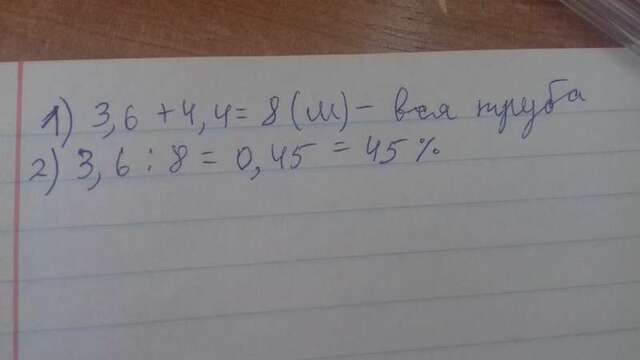 1) 3,6 + 4,4 = 8 (м) - вся труба
2) 3,6 : 8 = 0,45 = 45 %